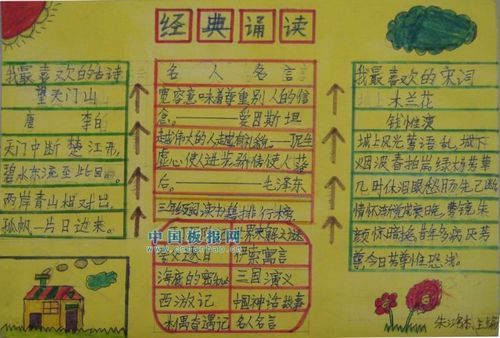 经典诵读
我最喜欢的古诗
望天门山
唐 李白
天门中断楚江开,
碧水东流至此回。
两岸青山相对出,
孤帆一片日边来。
名人名言
宽容意味着尊重别人的信
念。——爱因斯坦
越伟大的人越有礼貌。
虚心使人进步,骄傲使人落
后。——毛泽东
三年级阅读书籍排行榜
中国板报网
伊索寓言
海底的
三国演义
西游记
中国神话故事
木偶奇遇记
名人名言
我最喜欢的宋词
木兰花
钱惟演
城上风光莺语乱,城下
烟波春拍岸,绿杨芳草
几时休,泪眼愁肠先已断。
情怀渐觉成衰晚,鸾镜朱
颜惊暗换,昔年多病厌芳
尊,今日芳尊惟恐浅。